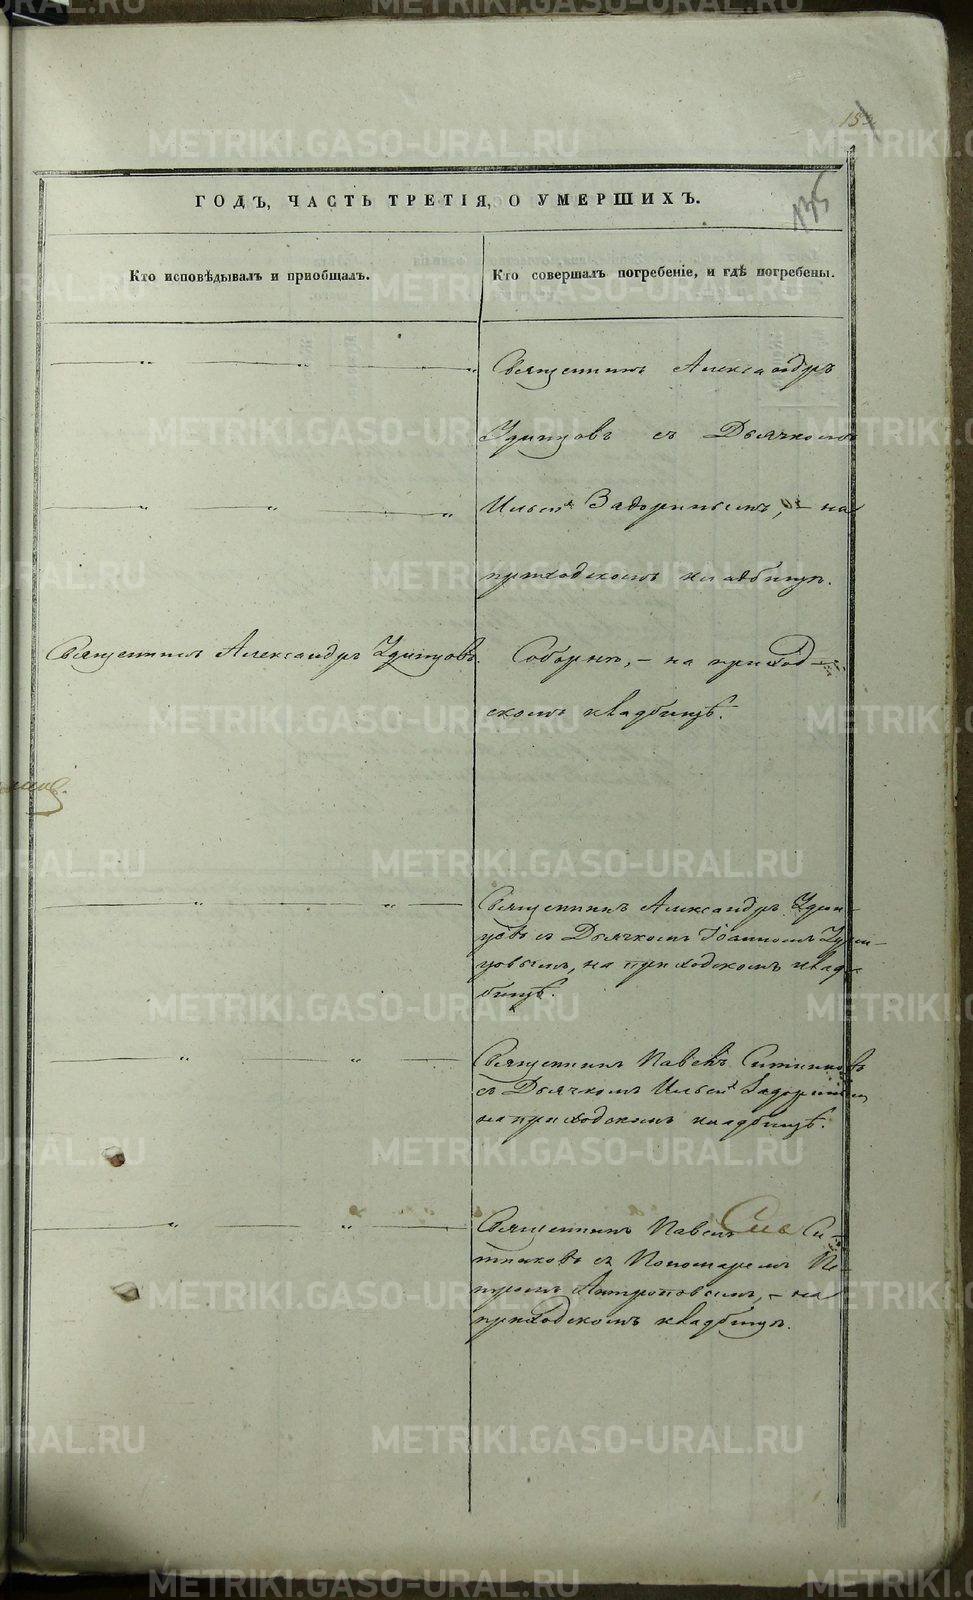 135
ГОДЪ, ЧАСТЬ ТРЕТІЯ, О УМЕРШИХЪ.
Кто исповѣдывалъ и пріобщалъ.
Кто совершалъ погребеніе, и гдѣ погребены.
Священникъ Александръ
Удинцовъ съ Дьячкомъ
Ильей Задоринымъ, – на
приходскомъ кладбищѣ.
Священникъ Александръ Удинцовъ.
Соборнѣ, – на приход-
скомъ кладбищѣ.
Священникъ Александръ Удин-
цовъ съ Дьячкомъ Іоанномъ Удин-
цовымъ, на приходскомъ клад-
бищѣ.
Священникъ Павелъ Ситниковъ
съ Дьячкомъ Ильей Задоринымъ
на приходскомъ кладбищѣ.
Священникъ Павелъ Си-
тниковъ съ Пономаремъ Пе-
тромъ Антроповымъ, – на
приходскомъ кладбищѣ.
METRIKI.GASO-URAL.RU